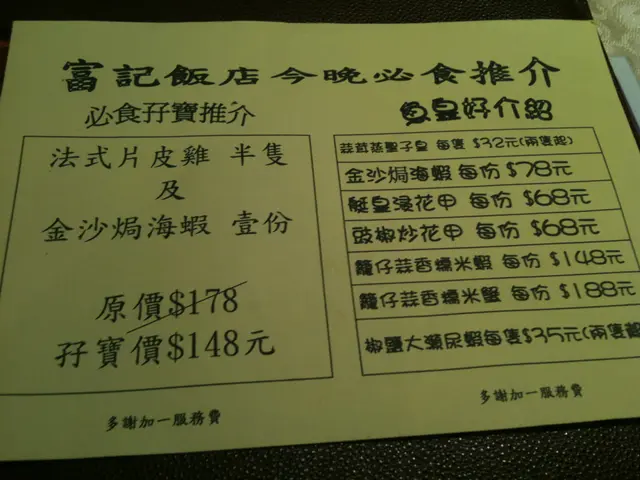 富記飯店今晚必食推介
必食孖寶推介
法式片皮雞 半隻
及
金沙焗海蝦 壹份
原價$178
孖寶價$148元
多謝加一服務費
魚皇好介紹
蒜茸蒸聖子皇 每隻 $32元(兩隻起)
金沙焗海蝦 每份 $78元
艇皇浸花甲 每份 $68元
豉椒炒花甲 每份 $68元
籠仔蒜香糯米蝦 每份 $148元
籠仔蒜香糯米蟹 每份 $188元
椒鹽大瀨尿蝦每隻$35元(兩隻起
多謝加一服務費